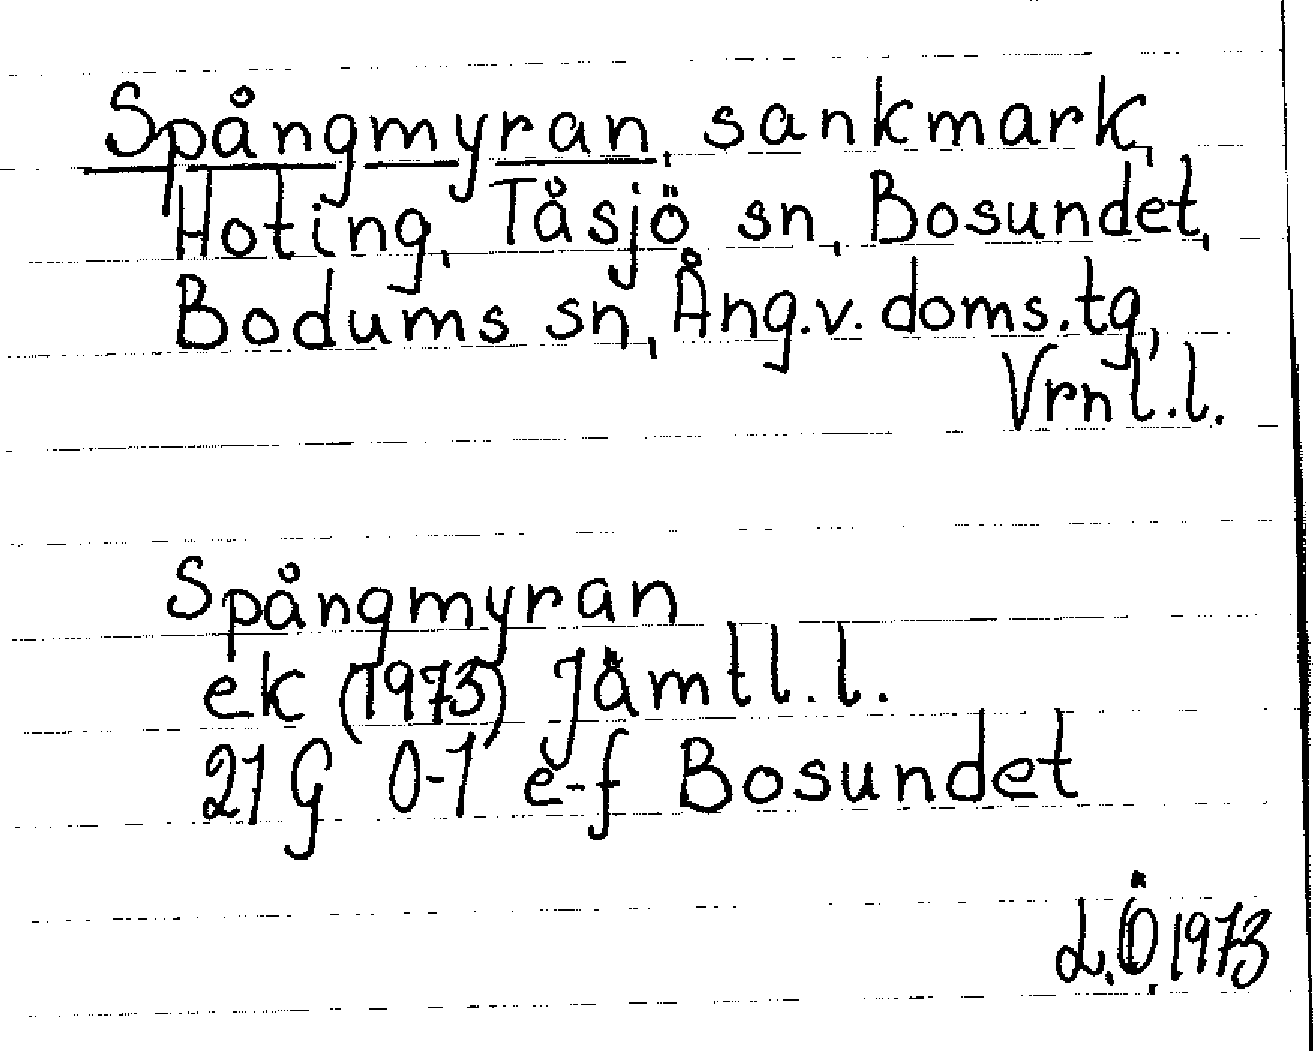 Spångmyran, sankmark,
Hoting, Tåsjö sn, Bosundet,
Bodums sn, Ång.v. doms.tg,
Vrnl.l.
Spångmyran
ek (1973) Jämtl.l.
21 G 0-1 e-f Bosundet
L.Ö. 1973